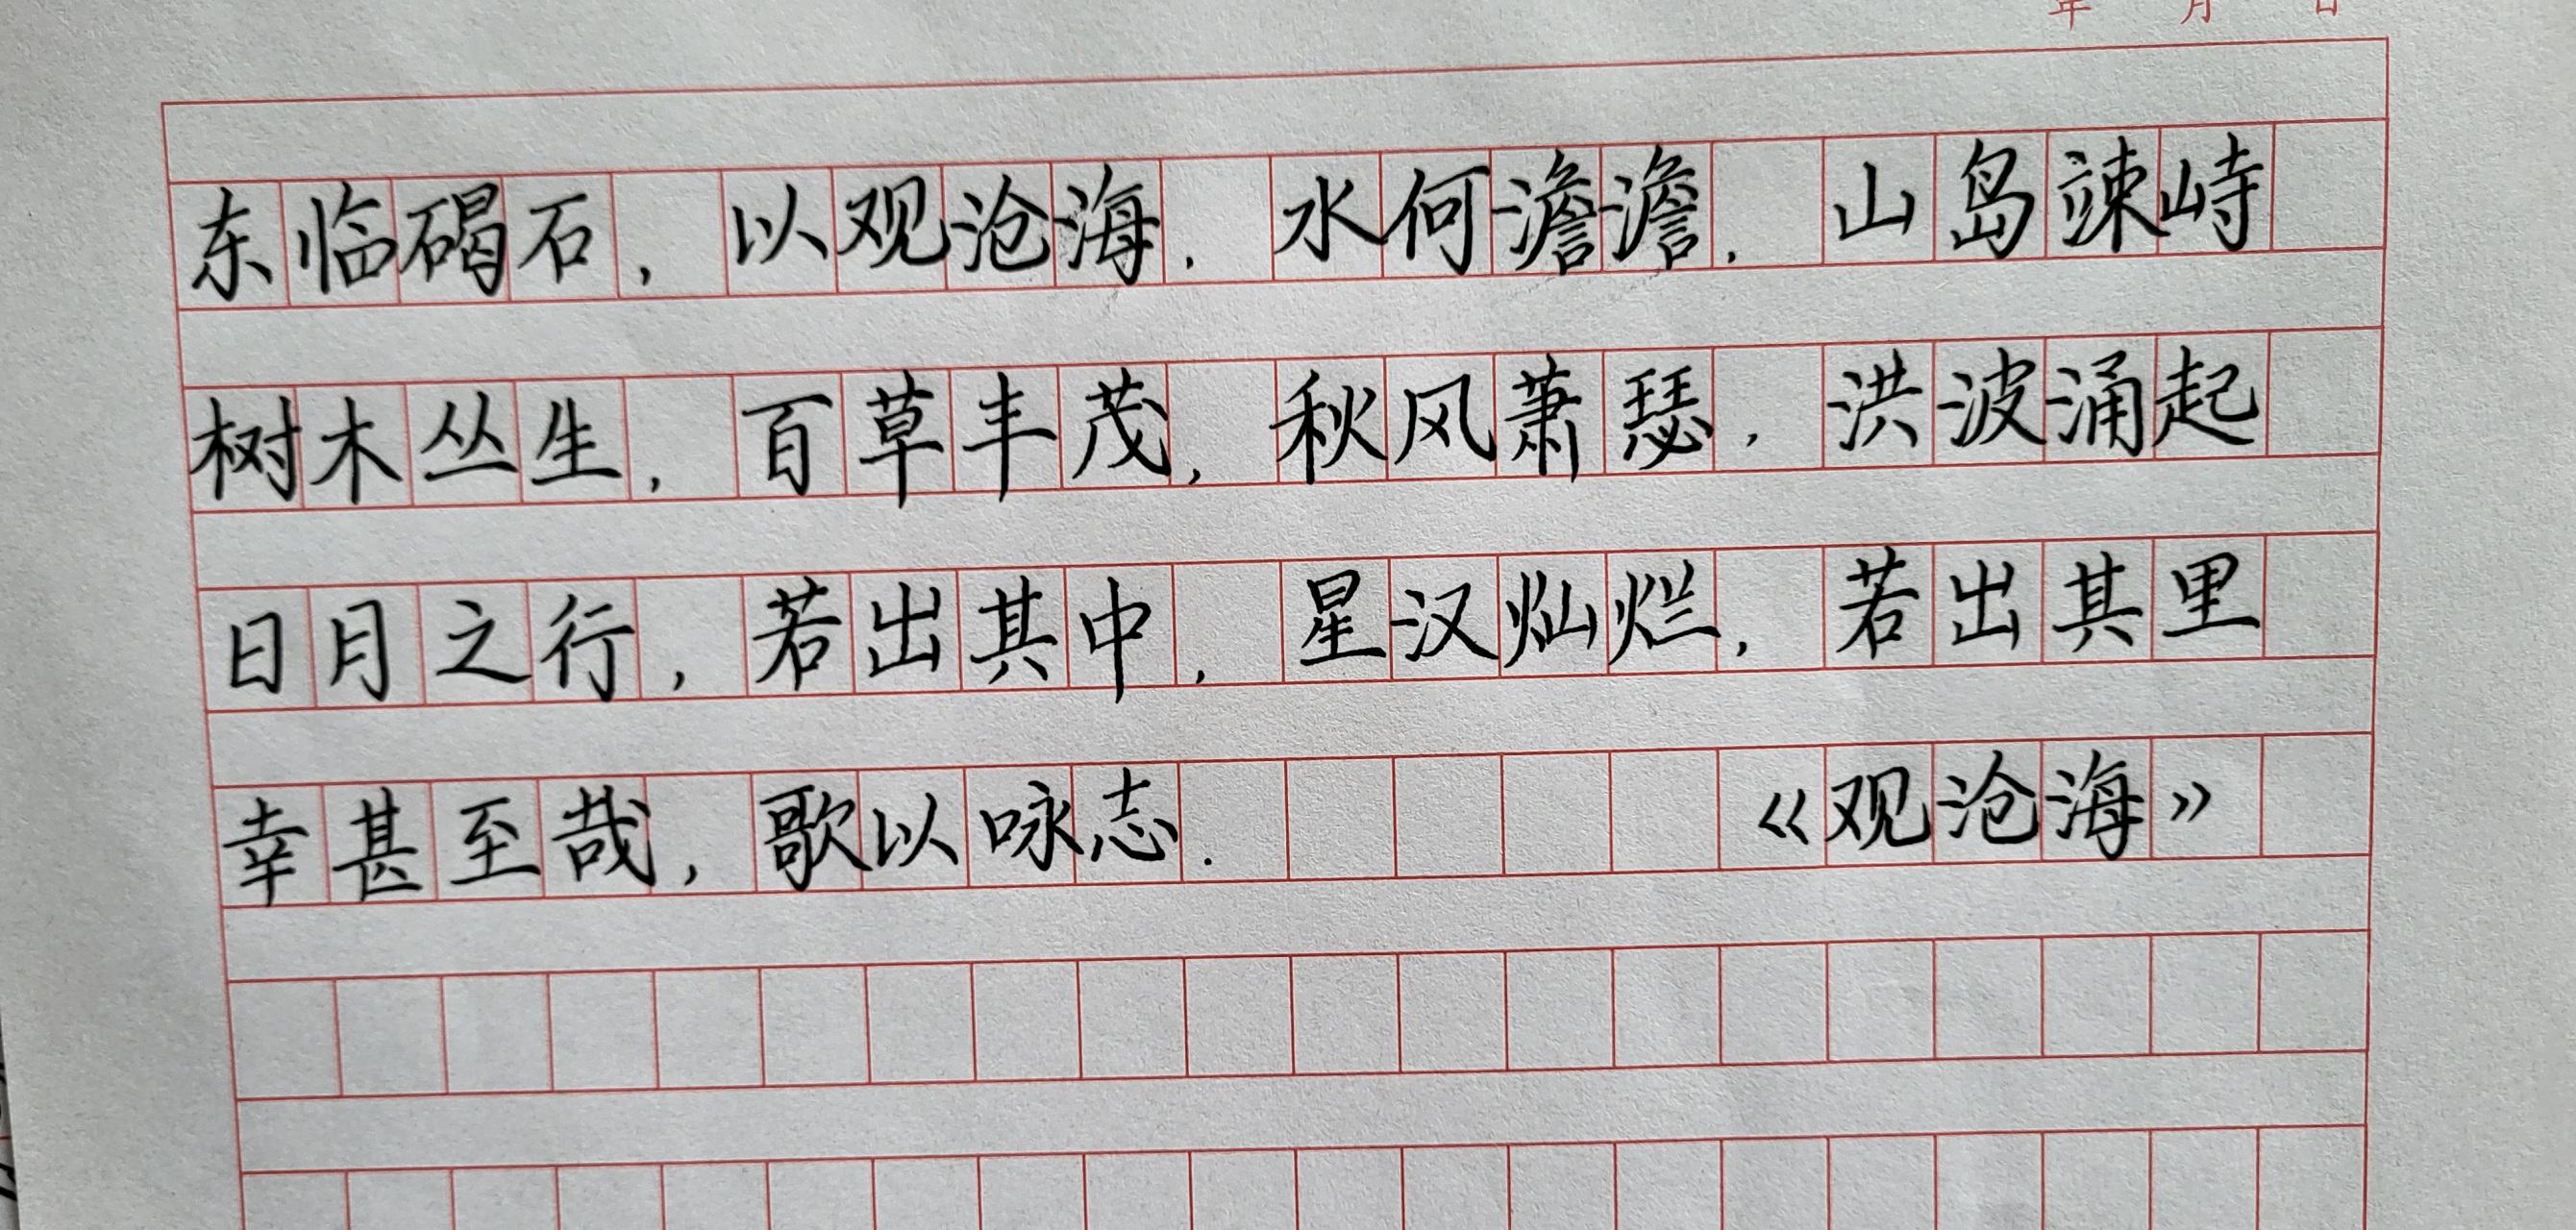 年 月 日
东临碣石，以观沧海．水何澹澹．山岛竦峙
树木丛生，百草丰茂，秋风萧瑟，洪波涌起
日月之行，若出其中，星汉灿烂，若出其里
幸甚至哉，歌以咏志． 《观沧海》